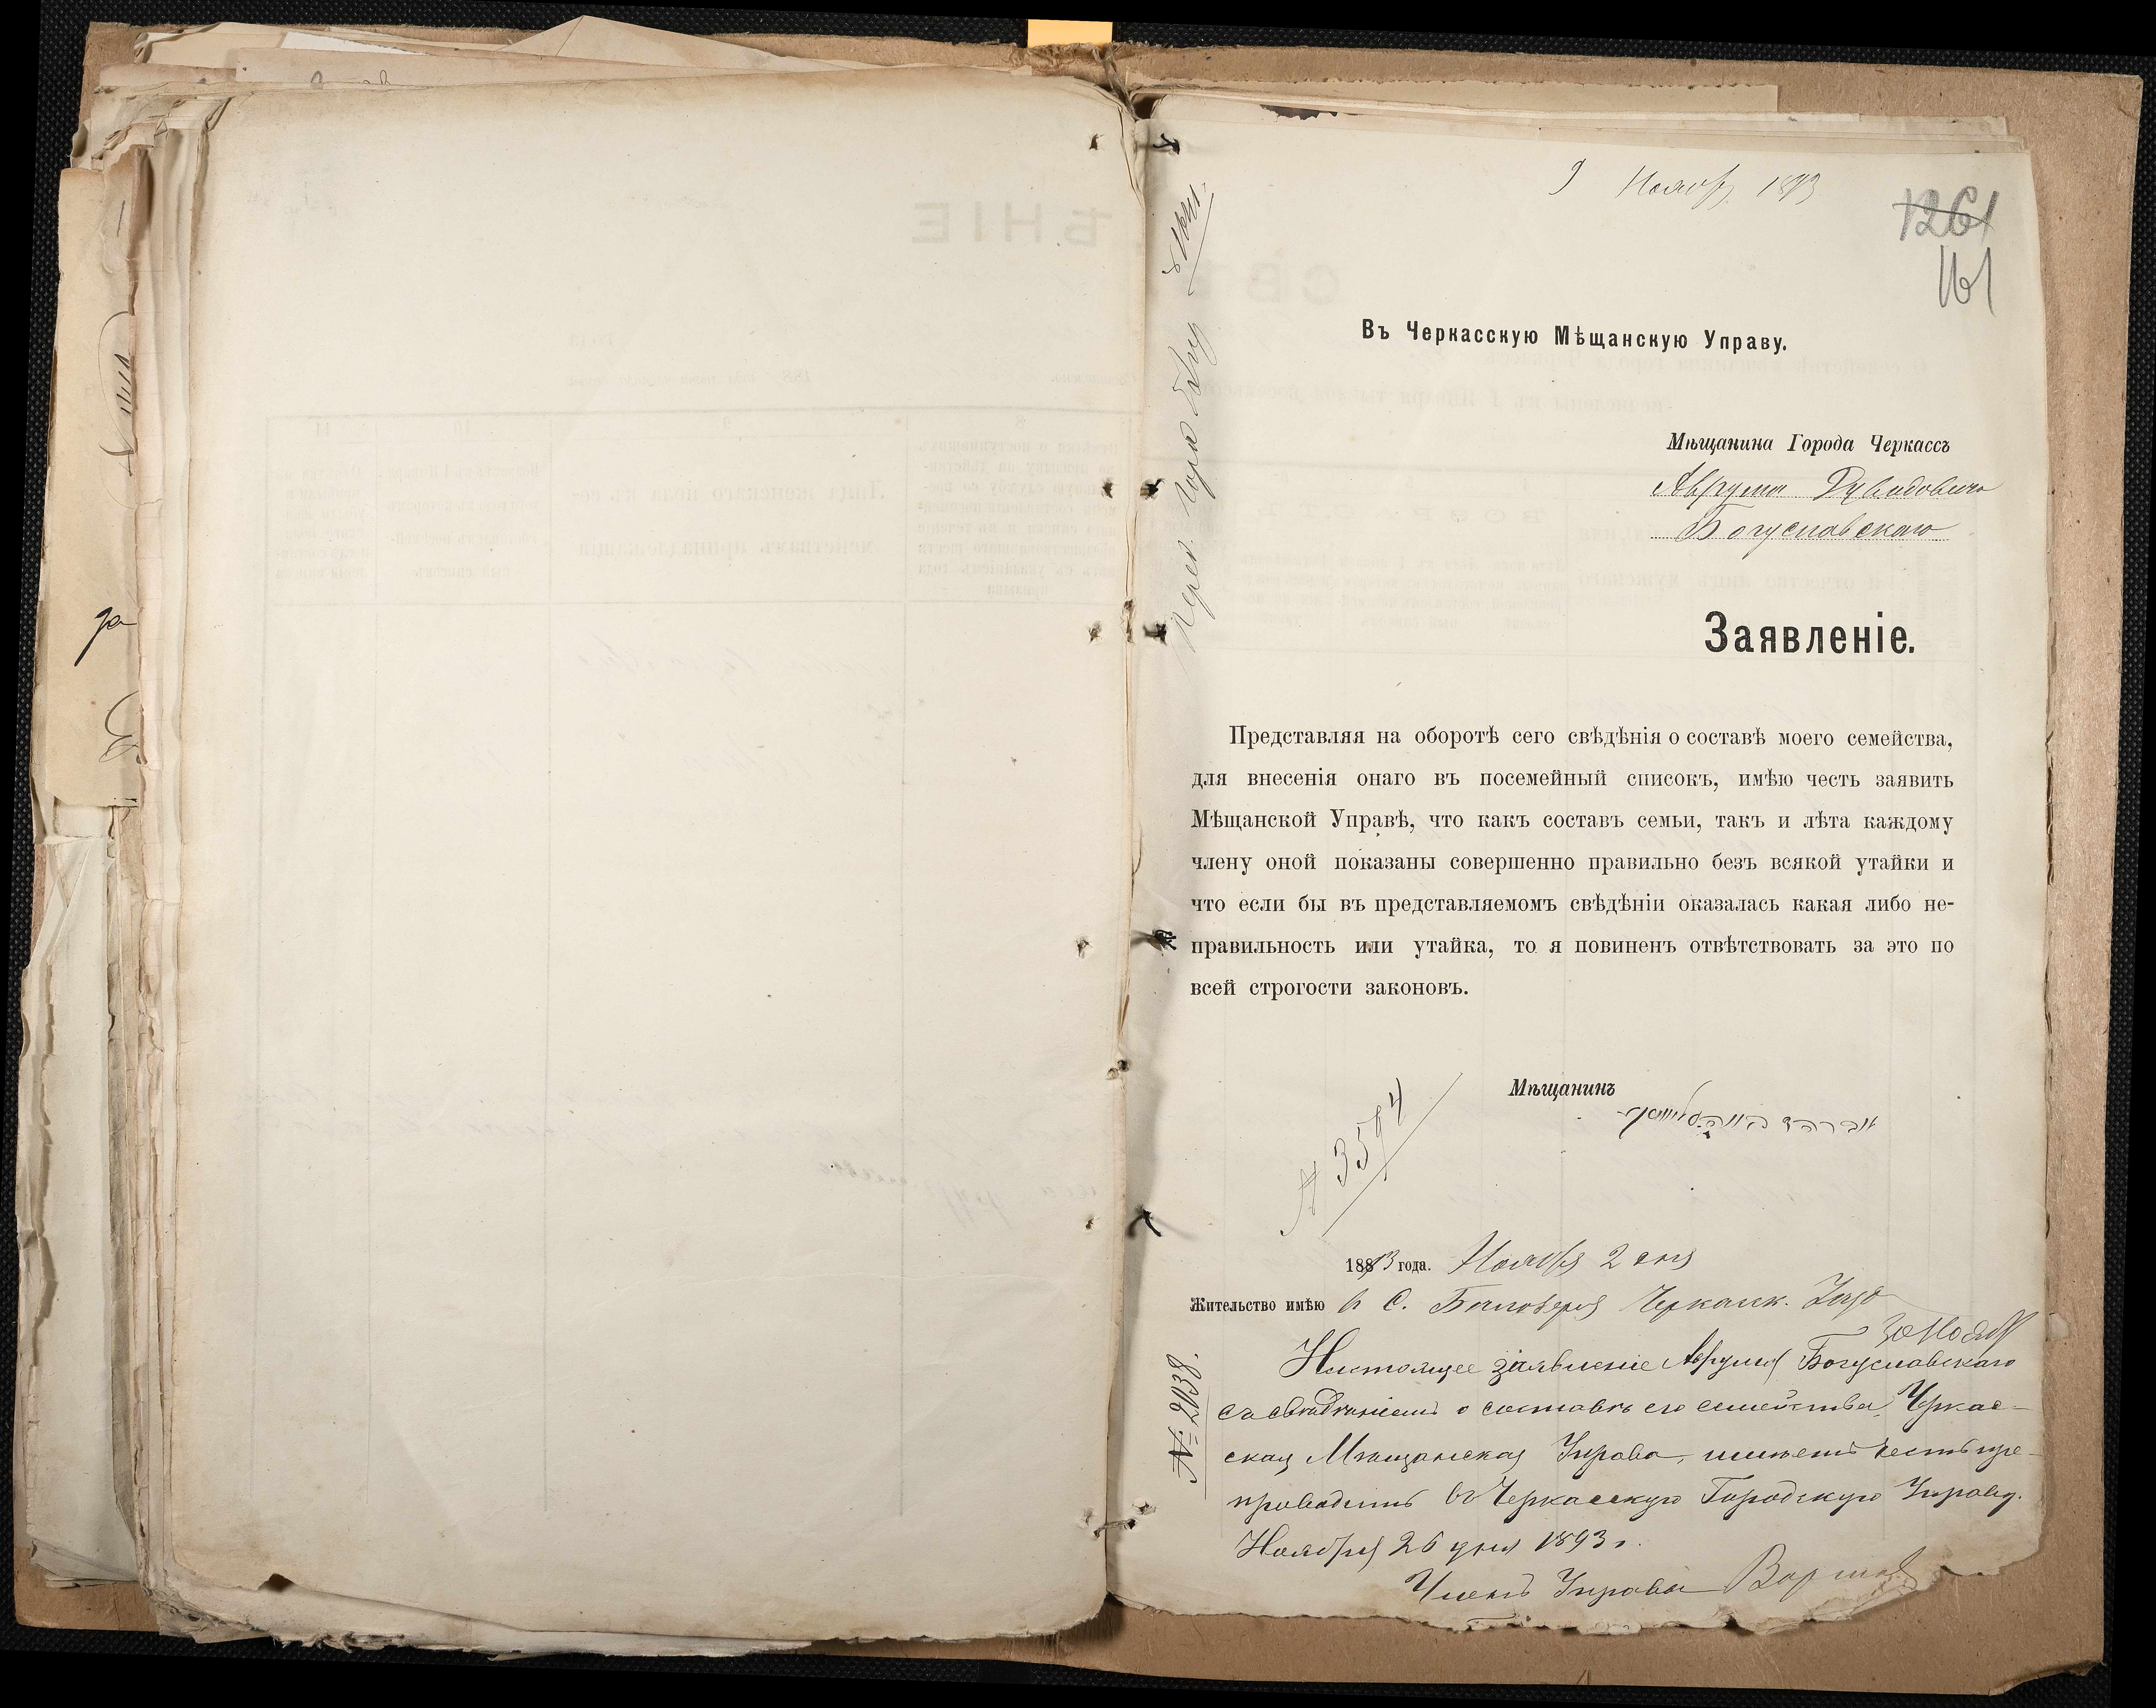 9 Ноябр. 1893
1261
161
Въ Черкасскую Мѣщанскую Управу.
Мѣщанина Города Черкассъ
Аврума Дувидовича
Богуславскаго
Заявленіе.
Представляя на оборотѣ сего свѣдѣнія о составѣ моего семейства,
для внесенія онаго въ посемейный списокъ, имѣю честь заявить
Мѣщанской Управѣ, что какъ составъ семьи, такъ и лѣта каждому
члену оной показаны совершенно правильно безъ всякой утайки и
что если бы въ представляемомъ свѣдѣніи оказалась какая либо не-
правильность или утайка, то я повиненъ отвѣтствовать за это по
всей строгости законовъ.
Мѣщанинъ
№ 3594
1893 года. Ноября 2 дня
Жительство имѣю в С. Черкасск. Уезд
Настоящее заявленіе Аврума Богуславскаго
съ свѣдѣніемъ о составѣ его семейства, Черкас-
ская Мѣщанская Управа, имѣетъ честь пре-
проводить въ Черкасскую Городскую Управу.
Ноября 26 дня 1893 г.
Членъ Управы
№ 2038.